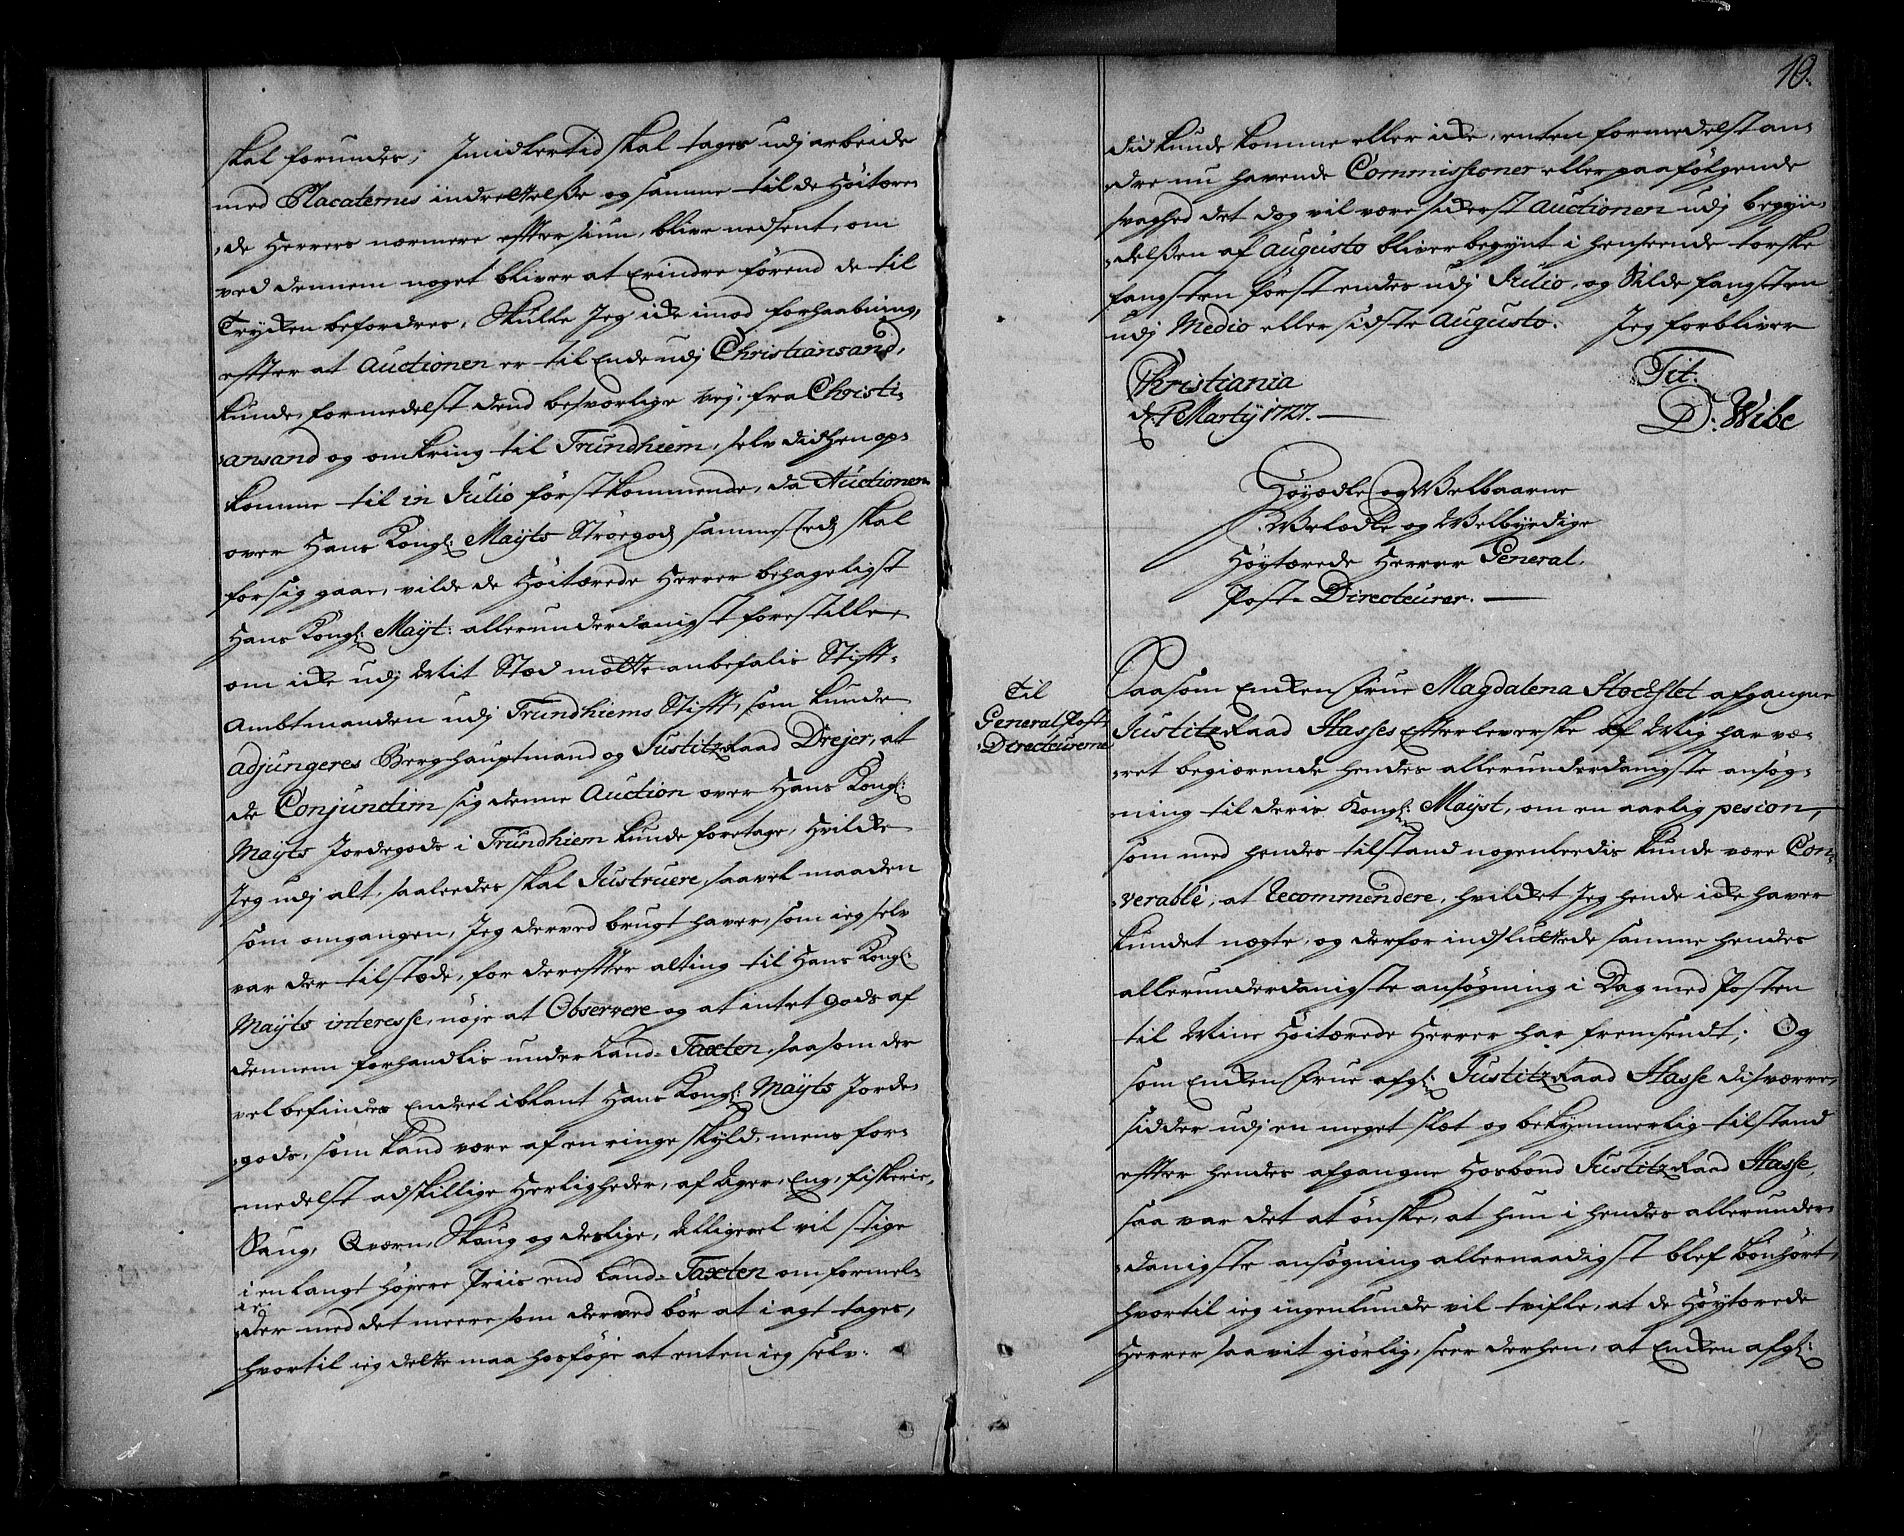 skal forundes, Imidlertid skal tages udj arbeide
med Placaternes indrettelsse og samme til de Höitære-
de Herrers nærmere efftersiun, blive nedsent, om
ved dennem noget bliver at Erindre förend de til
Trycken befordres, Skulle Jeg icke imod forhaabning,
effter at Auctionen er til Ende udj Christiansand,
kunde, formedelst dend besværlige Vej fra Christi-
ansand og omkring til Trundhiem, selv didhen op-
komme til in Julio förstkommende, da Auctionen
over Hans Kongl: Mayts Ströegods sammesteds skal
forsig gaae, vilde de Höitærede Herrer behageligst
Hans Kongl: Mayt: allerunderdanigst forestille,
om icke udj Mit Stæd motte anbefalis Stifft-
Ambtmanden udj Trundhiems Stifft, som kunde
adjungeres Berghauptmand og Justitz Raad Drejer, at
de Conjunctim sig denne Auction over Hans Kongl:
Mayts Jordegods i Trundhiem kunde foretage, hvilke
Jeg udj alt, saaleedes skal Instruere, saavel maaden
som omgangen, Jeg derved brugt haver, som ieg selv
var der tilstæde, for dereffter alting til Hans Kongl:
Mayts interesse, nöje at Observere og at intet gods af
dennem forhandlis under Land-Taxten, saasom der
vel befindes Endeel iblant Hans Kongl: Mayts Jorde-
gods, som kand være af en ringe skyld, mens for-
medelst adskillige Herligheder, af Ager, Eng, fiskerie,
Saug, Qværn, Skoug og deslige, alligevel vil stige
i en langt höjere Priis end Land-Taxten om formel-
der med det meere som derved bör at i agt tages,
hvortil ieg dette maa hosföje at enten ieg selv
10.
did kunde komme eller icke, enten formedelst an-
dre nu havende Commissioner eller paafölgende
svaghed det dog vil være sikerst Auctionen udj begyn-
delssen af Augusto bliver begynt i henseende torske
fangsten först endes udj Julio, og Silde fangsten
udj Medio eller sidste Augusto. Jeg forbliver
Christiania
Tit.
Martij 1727.
D: Wibe
Höyædle og Velbaarne
Velædle og Velbyrdige
Höytærede Herrer General
Post-Directeurer.
Til
General Post
Directeurerne
Saasom Encken Frue Magdalena Stochflet afgangne
Justitz Raad Hasses Effterleverske af Mig har væ-
ret begiærende hendes allerunderdanigste ansög-
ning til deris Kongl: Mayst, om en aarlig pesion,
som med hendes tilstand nogenleedis kunde være Con-
verable, at Recommendere, hvilket Jeg hende icke haver
kundet nægte, og derfor indsluttede samme hendes
allerunderdanigste ansögning i Dag med Posten
til Mine Höitærede Herrer har fremsendt; Og
som Encken Frue afgl: Justitz Raad Hasse disværre
sidder udj en meget slæt og bekymmerlig tilstand
effter hendes afgangne Hosbond Justitz Raad Hasse,
saa var det at önske, at hun i hendes allerunder-
danigste ansögning allernaadigst blef bönhört,
hvortil ieg ingenlunde vil tvifle, at de Höytærede
Herrer saavit giörlig, seer derhen, at Encken afgl: